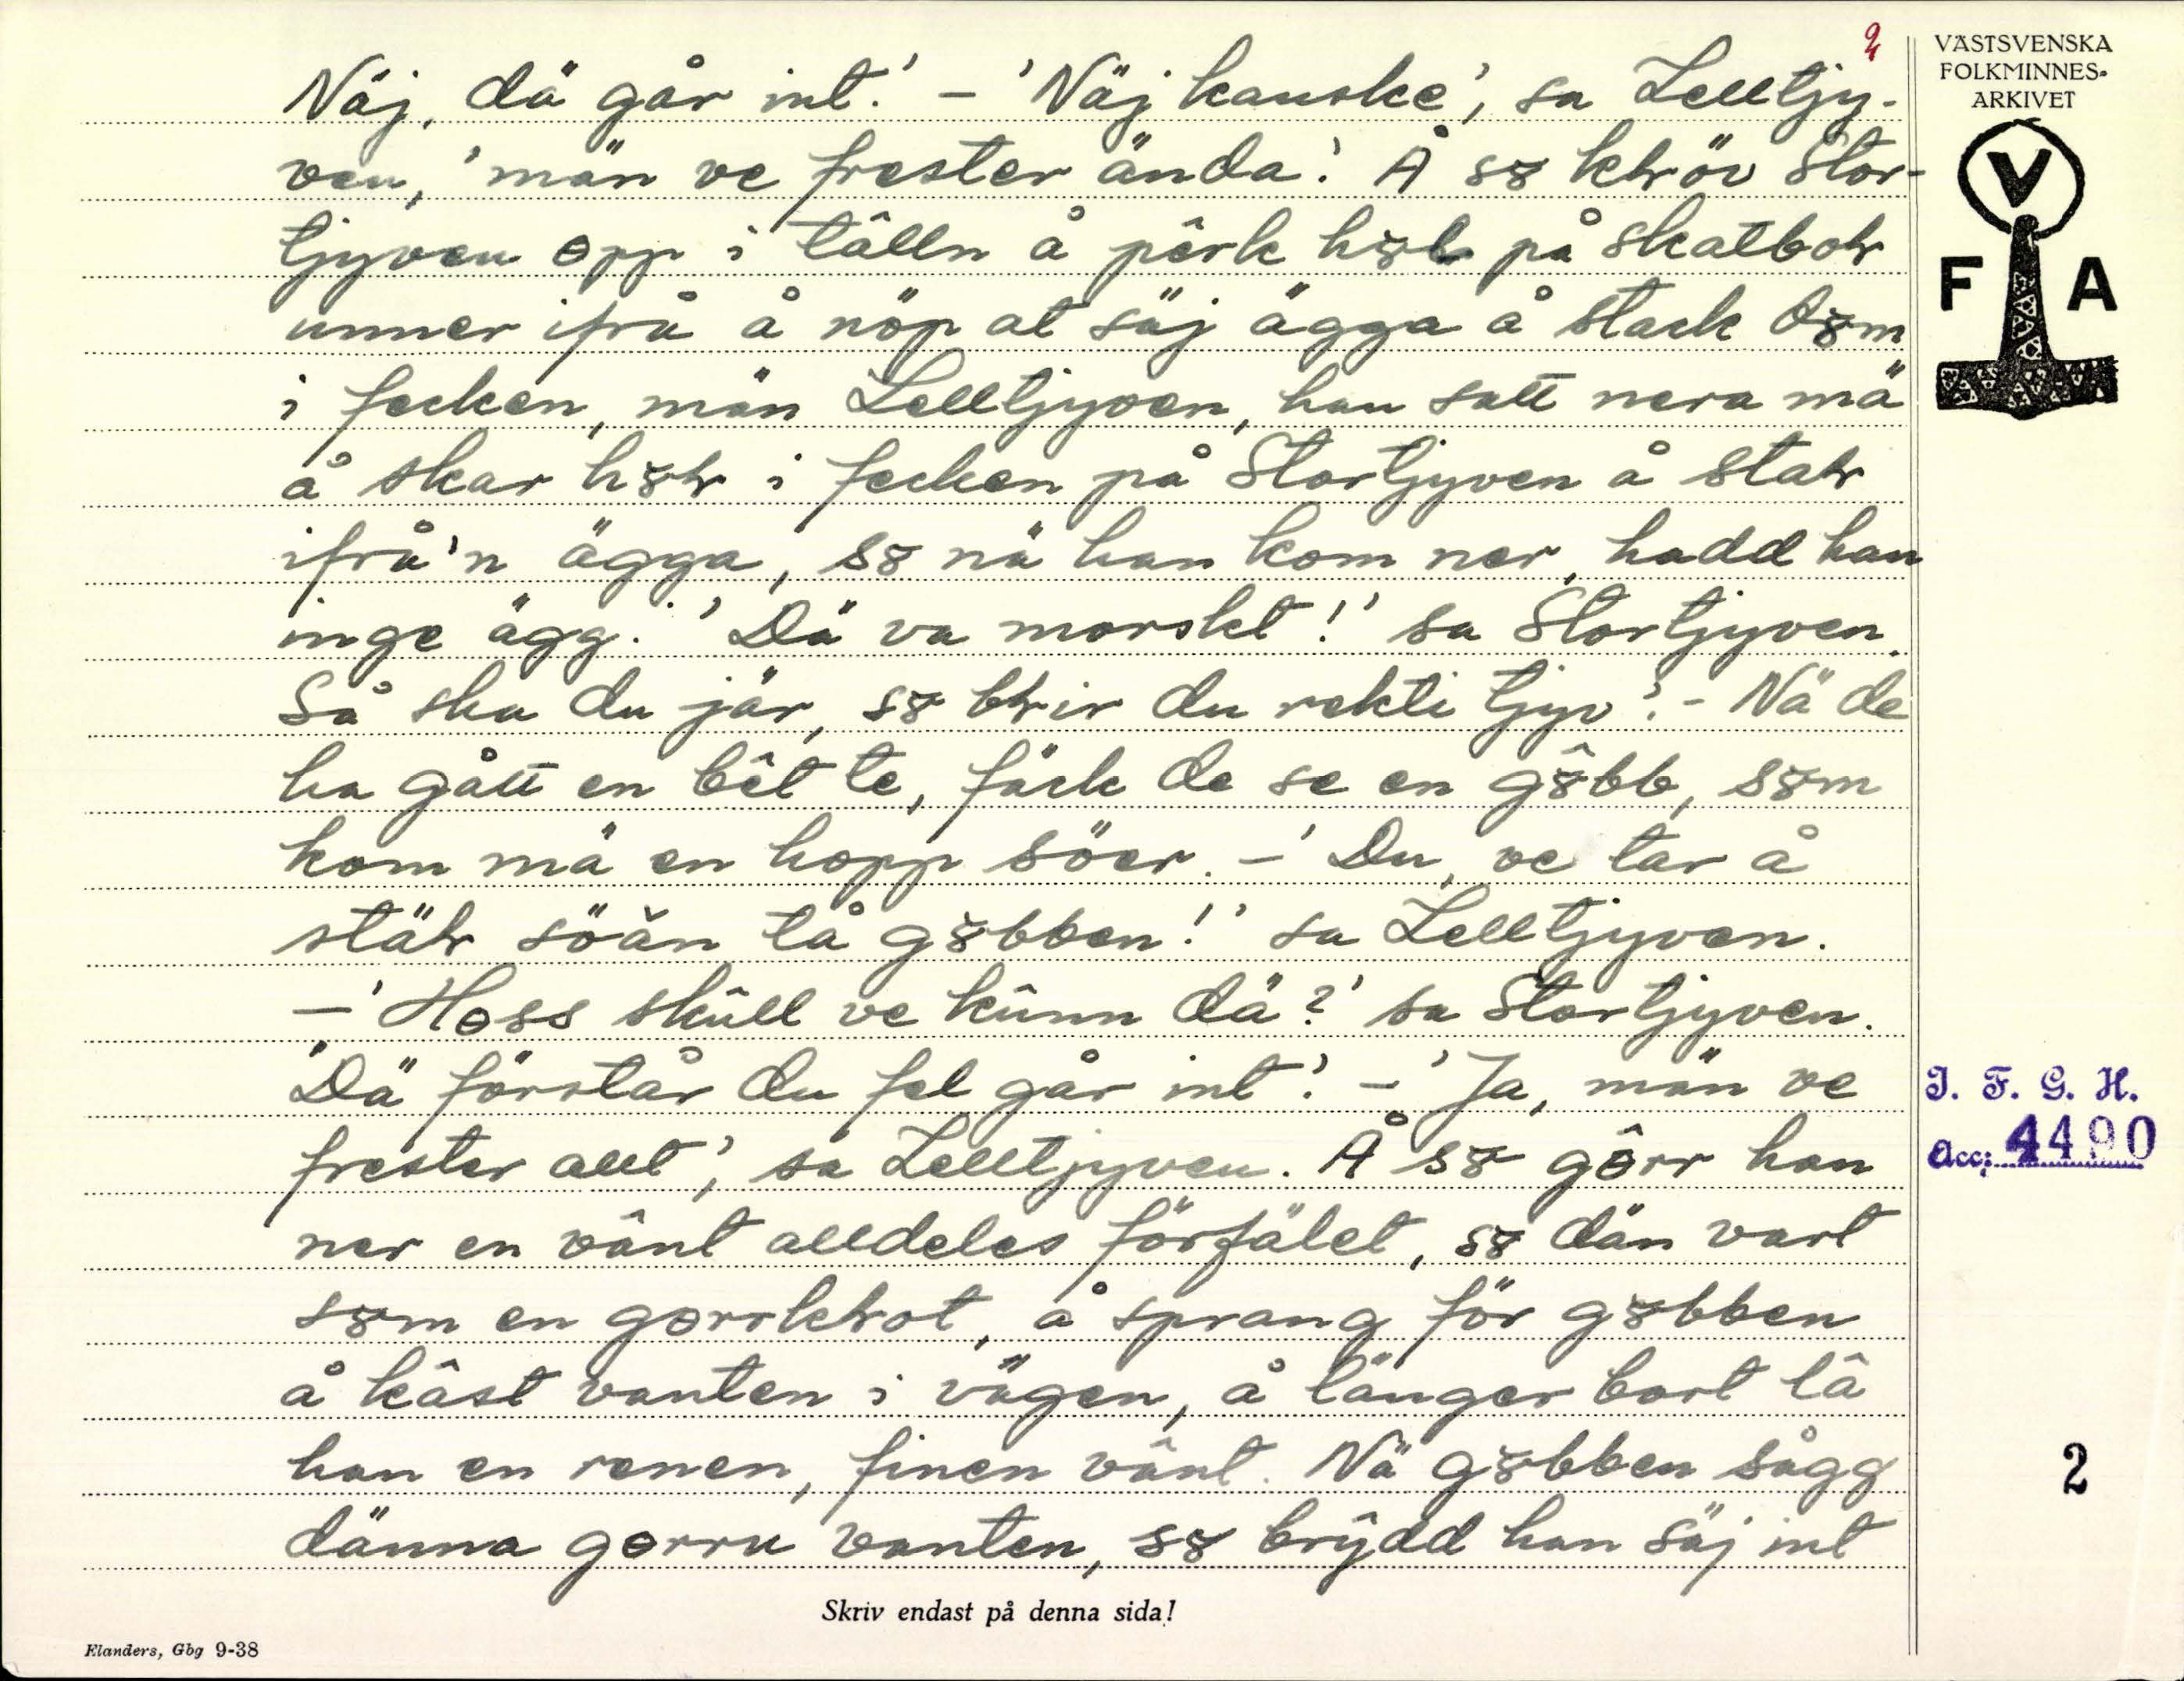 2
VÄSTSVENSKA
FOLKMINNES-
ARKIVET
V
F A
Näj, dä går int.' – 'Näj kanske', sa Lelltjy-
ven, 'män ve frester ända.' Å sȣ kłröv Stor-
tjyven ɵpp i tâlln å pêrk hȣł på skatboł
unner ifrå å nöp at säj ägga å stack dȣm
i fecken, män Lelltjyven, han satt nera mä
å skar hȣł i fecken på Stortjyven å stał
ifrå'n ägga, sȣ nä han kom ner, hadd han
inge ägg. 'Dä va morskt!' sa Stortjyven.
Så ska du jär, sȣ błir du rekti tjyv'. – Nä de
ha gått en bêt te, fäck de se en gȣ̂bb, sȣm
kom mä en hopp söer. – 'Du, ve tar å
stäł söǎn tå gȣbben!' sa Lelltjyven.
– 'Hɵss skûll ve kûnn dä?' sa Stortjyven.
'Dä förstår du fel går int.' – 'Ja, män ve
frester allt', sa Lelltjyven. Å sȣ gɵ̂rr han
ner en vânt alldeles förfälet, sȣ dän vart
sȣm en gɵrrkłot, å sprang för gȣbben
å kâst vanten i vägen, å länger bort lâ
han en renen, finen vânt. Nä gȣbben sågg
dänna gɵrru vanten, sȣ brŷdd han säj int
I. F. G. H.
Acc: 4490
2
Skriv endast på denna sida!
Elanders, Gbg 9-38